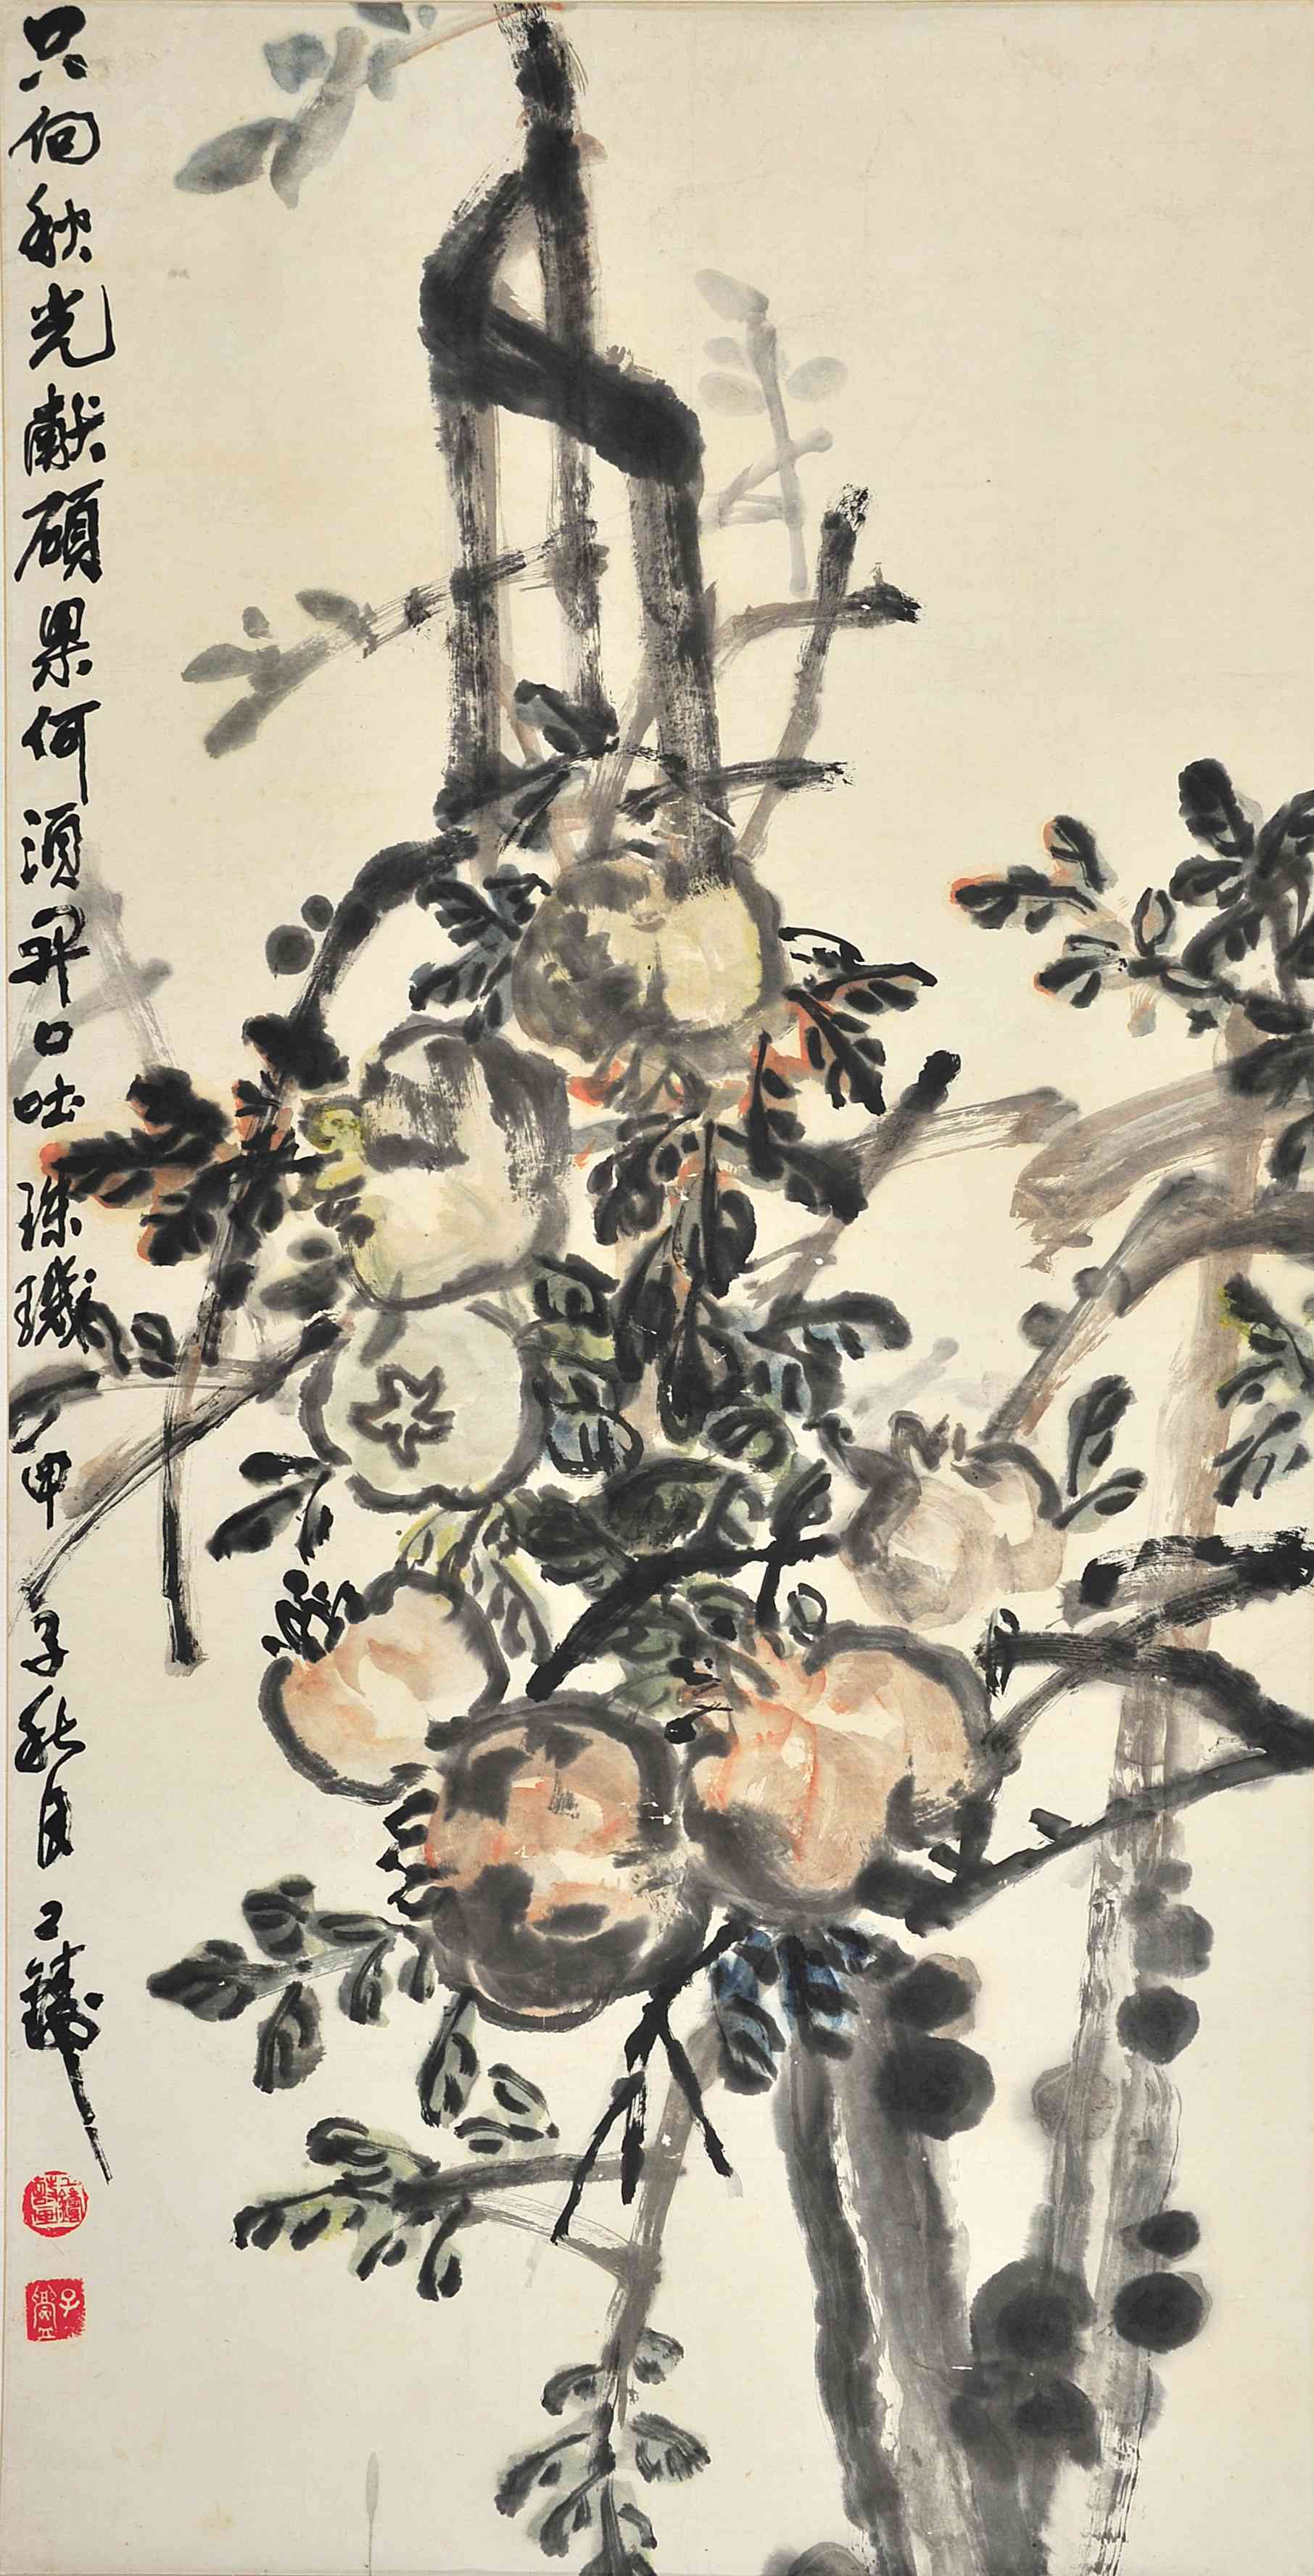 只向秋光献碩果何須开口吐珠璣
甲子秋月工鑄